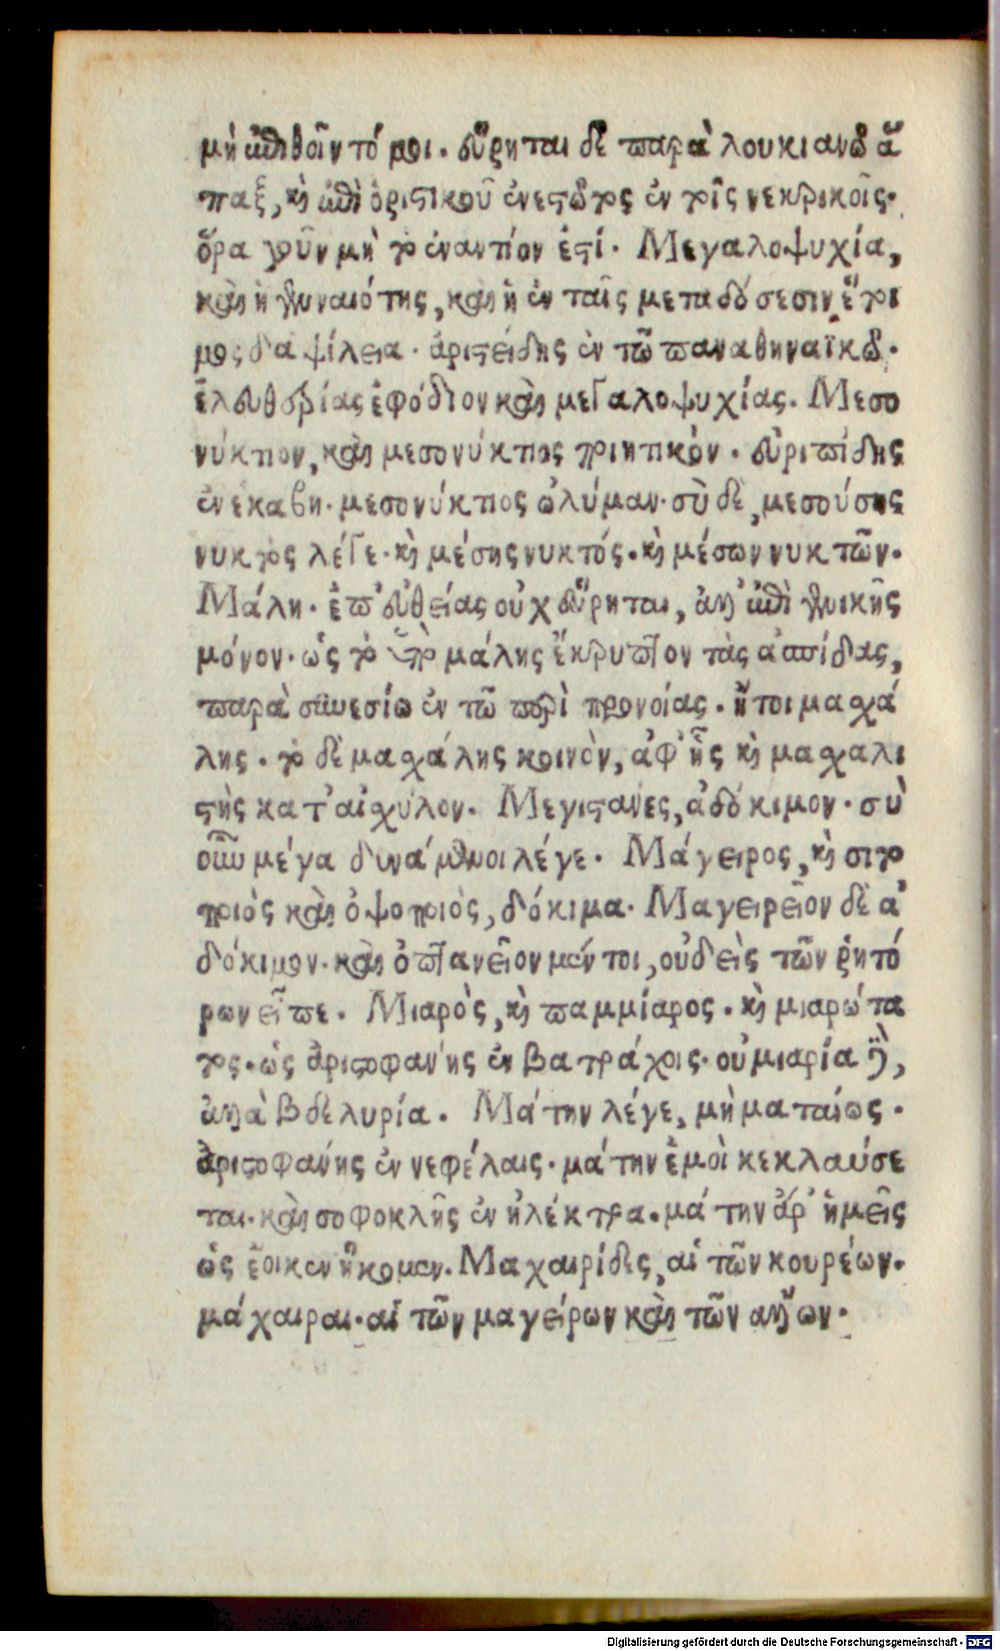 μὴ ἐπιθοῖντό μοι. εὕρηται δὲ παρὰ λουκιανῶ ἅ
παξ, καὶ ἐπὶ ὁριστικοῦ ἐνεστῶτος ἐν τοῖς νεκρικοῖς.
ὅρα γοῦν μὴ τὸ ἐναντίον ἐστί. Μεγαλοψυχία,
καὶ ἡ γενναιότης, καὶ ἡ ἐν ταῖς μεταδόσεσιν ἕτοι
μος δαψίλεια. ἀριστείδης ἐν τῶ παναθηναϊκῶ.
ἐλευθερίας ἐφόδιον καὶ μεγαλοψυχίας. Μεσο
νύκτιον, καὶ μεσονύκτιος ποιητικόν. εὐριπίδης
ἐν ἑκάβη. μεσονύκτιος ὠλύμαν. σὺ δὲ, μεσούσης
νυκτὸς λέγε. καὶ μέσης νυκτός. καὶ μέσων νυκτῶν.
Μάλη. ἐπ' εὐθείας οὐχ εὕρηται, ἀλλ' ἐπὶ γενικῆς
μόνον. ὡς τὸ ὑπὸ μάλης ἔκρυπτον τὰς ἀσπίδας,
παρὰ συνεσίω ἐν τῶ περὶ προνοίας. ἤτοι μαχά
λης. τὸ δὲ μαχάλης κοινὸν, ἀφ' ἧς καὶ μαχαλι
στὴς κατ' αἰσχύλον. Μεγιστᾶνες, ἀδόκιμον. σὺ
οὖν μέγα δυνάμενοι λέγε. Μάγειρος, καὶ σιτο
ποιὸς καὶ ὀψοποιὸς, δόκιμα. Μαγειρεῖον δὲ ἀ
δόκιμον. καὶ ὀπτανεῖον μέντοι, οὐδεὶς τῶν ῥητό
ρων εἶπε. Μιαρὸς, καὶ παμμίαρος. καὶ μιαρώτα
τος. ὡς ἀριστοφάνης ἐν βατράχοις. οὐ μιαρία δὲ,
ἀλλὰ βδελυρία. Μάτην λέγε, μὴ ματαίως.
ἀριστοφάνης ἐν νεφέλαις. μάτην ἐμοὶ κεκλαύσε
ται. καὶ σοφοκλῆς ἐν ἠλέκτρα. μάτην ἄρ' ἡμεῖς
ὡς ἔοικεν ἥκομεν. Μαχαιρίδες, αἱ τῶν κουρέων.
μάχαιραι. αἱ τῶν μαγείρων καὶ τῶν ἄλλων.
Digitalisierung gefördert durch die Deutsche Forschungsgemeinschaft - DFG